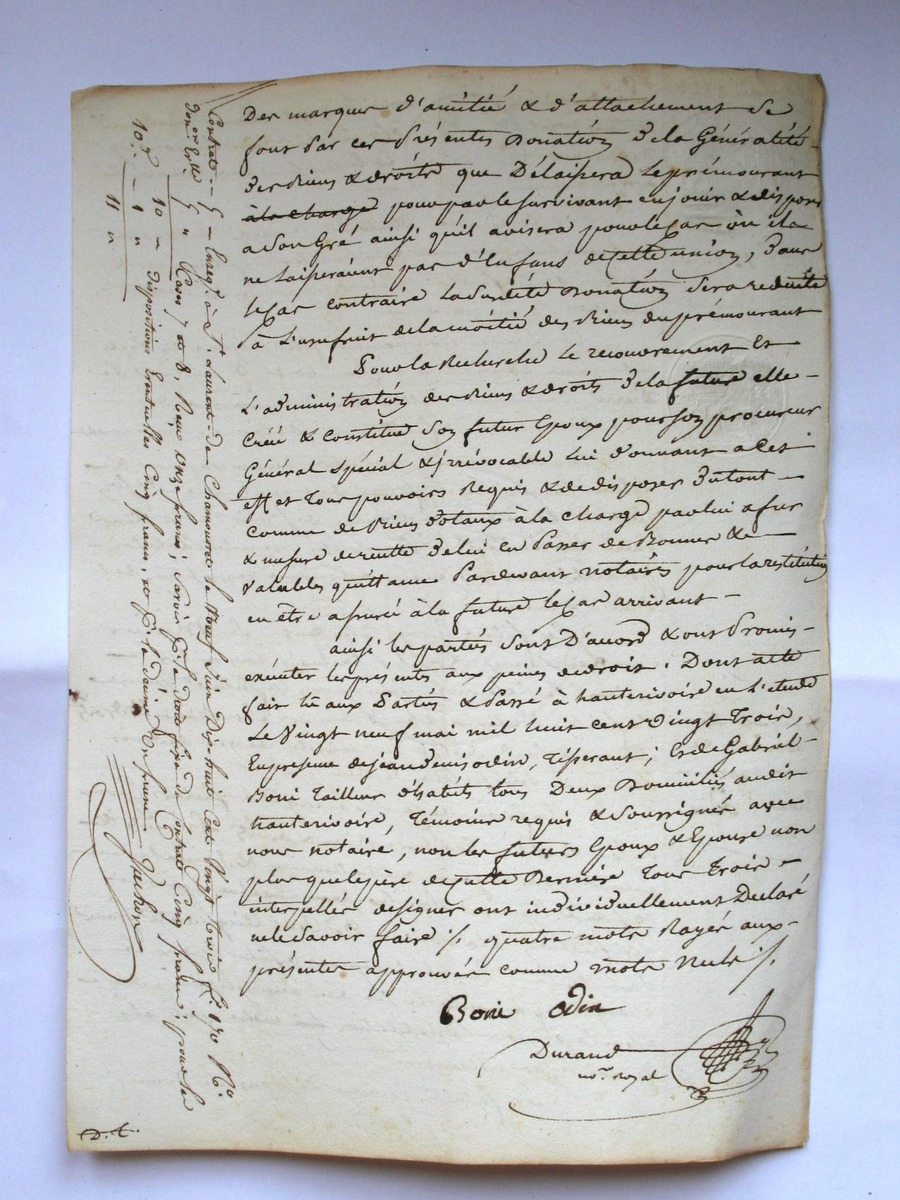 Des marques d'amitié & d'attachement se
font par ces présentes Donation de la Généralité
des Biens & droits que Délaissera le prémourant
à la charge pour par le survivant en jouir & disposer
a Son Gré ainsi qu'il avisera pour le Cas où ils
ne laisseraient pas d'Enfans de cette union, Dans
le Cas contraire la Susdite Donation Sera reduite
a L'usufruit de la moitié des Biens du prémourant
Pour la Recherche le recouvrement et
L'administration des Biens & droits de la future elle
Créé & constitue Son futur Epoux pour son procureur
Général spécial & irrévocable lui donnant a Cet
effet tous pouvoirs Requis & de disposer du tout
comme de Biens dotaux à la charge par lui a fur
& mesure de recette de lui en Passer de Bonnes &
Valables quittance Pardevant notaires pour la restitution
en être assurée à la future le Cas arrivant
ainsi les parties Sont D'accord & ont Promis
exécuter les présentes aux peines de droit. Dont acte
fait lu aux Parties & Passé à hauterivoire en L'etude
Le Vingt neuf mai mil huit cent Vingt Trois,
En présence de jean Denis odin, Tisserant; Et de Gabriel
Boni Tailleur d'habits tous Deux Domiciliés audit
hauterivoire, Témoins requis & Soussignés avec
nous notaire, non les futurs Epoux & Epouse non
plus que le père de cette Dernière Tous Trois
interpellés de signer ont individuellement Déclaré
ne le Savoir faire /. quatre mots Rayés aux
présentes approuvés comme mots Nuls /.
Boni Odin
Durand
no.re royal
D. t.
Contrat
Enreg.é à S.t Laurent de Chamousset le Neuf Juin Dix huit Cent Vingt trois f.o 170 R.o
Cases 7 et 8, Reçu onze francs; Savoir Cinq francs; pour les
Dispositions Eventuelles Cinq francs, et
10 "
1 "
11 "